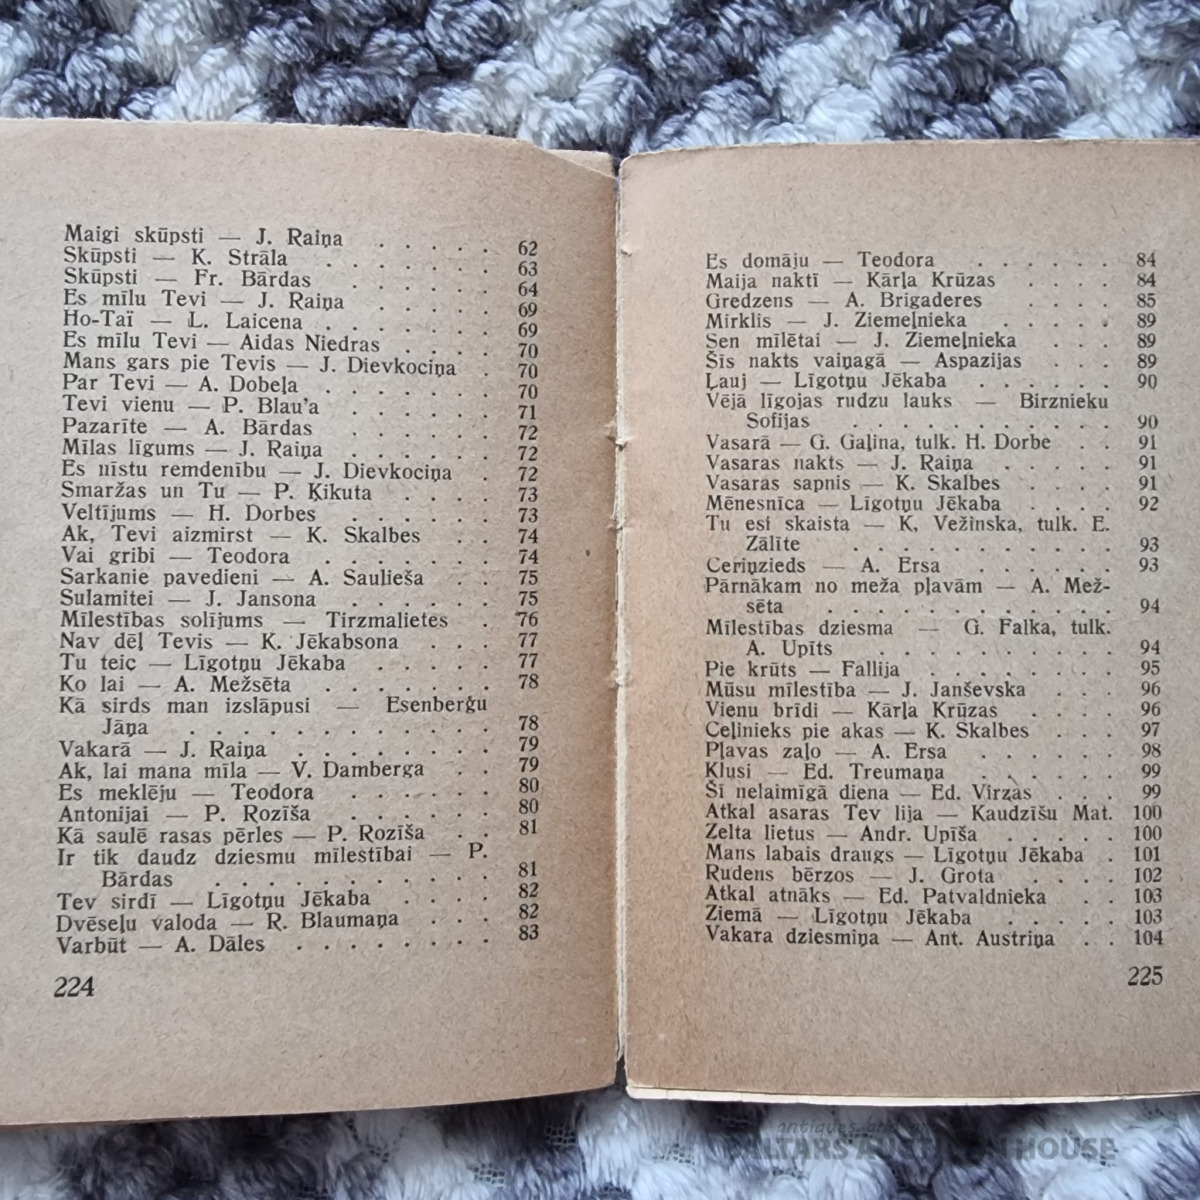 Maigi skūpsti — J. Raiņa . . . . . 62
Skūpsti — K. Strāla . . . . . . 63
Skūpsti — Fr. Bārdas . . . . . 64
Es mīlu Tevi — J. Raiņa . . . . 69
Ho-Taï — L. Laicena . . . . . . 69
Es mīlu Tevi — Aidas Niedras . . . 70
Mans gars pie Tevis — J. Dievkociņa . 70
Par Tevi — A. Dobeļa . . . . . 70
Tevi vienu — P. Blau'a . . . . . 71
Pazarīte — A. Bārdas . . . . . 72
Mīlas līgums — J. Raiņa . . . . . 72
Es nīstu remdenību — J. Dievkociņa . 72
Smaržas un Tu — P. Ķikuta . . . . 73
Veltījums — H. Dorbes . . . . . 73
Ak, Tevi aizmirst — K. Skalbes . . . 74
Vai gribi — Teodora . . . . . . 74
Sarkanie pavedieni — A. Saulieša . . . 75
Sulamitei — J. Jansona . . . . . 75
Mīlestības solījums — Tirzmalietes . 76
Nav dēļ Tevis — K. Jēkabsona . . . 77
Tu teic — Līgotņu Jēkaba . . . . 77
Ko lai — A. Mežsēta . . . . . . 78
Kā sirds man izslāpusi — Esenberģu
Jāņa . . . . . . . . . . . 78
Vakarā — J. Raiņa . . . . . . . 79
Ak, lai mana mīla — V. Damberga . . 79
Es meklēju — Teodora . . . . . 80
Antonijai — P. Rozīša . . . . . 80
Kā saulē rasas pērles — P. Rozīša . . 81
Ir tik daudz dziesmu mīlestībai — P.
Bārdas . . . . . . . . . . 81
Tev sirdī — Līgotņu Jēkaba . . . . 82
Dvēseļu valoda — R. Blaumaņa . . . 82
Varbūt — A. Dāles . . . . . . . 83
224
Es domāju — Teodora . . . . . . 84
Maija naktī — Kārļa Krūzas . . . . 84
Gredzens — A. Brigaderes . . . . 85
Mirklis — J. Ziemeļnieka . . . . . 89
Sen mīlētai — J. Ziemeļnieka . . . 89
Šīs nakts vaiņagā — Aspazijas . . . 89
Ļauj — Līgotņu Jēkaba . . . . . . 90
Vējā līgojas rudzu lauks — Birznieku
Sofijas . . . . . . . . . . 90
Vasarā — G. Gaļina, tulk. H. Dorbe . . 91
Vasaras nakts — J. Raiņa . . . . . 91
Vasaras sapnis — K. Skalbes . . . . 91
Mēnesnīca — Līgotņu Jēkaba . . . . 92
Tu esi skaista — K, Vežinska, tulk. E.
Zālīte . . . . . . . . . . 93
Ceriņzieds — A. Ersa . . . . . . 93
Pārnākam no meža pļavām — A. Mež-
sēta . . . . . . . . . . . 94
Mīlestības dziesma — G. Falka, tulk.
A. Upīts . . . . . . . . . 94
Pie krūts — Fallija . . . . . . . 95
Mūsu mīlestība — J. Janševska . . . 96
Vienu brīdi — Kārļa Krūzas . . . . 96
Ceļinieks pie akas — K. Skalbes . . . 97
Pļavas zaļo — A. Ersa . . . . . . 98
Klusi — Ed. Treumaņa . . . . . . 99
Šī nelaimīgā diena — Ed. Virzas . . . 99
Atkal asaras Tev lija — Kaudzīšu Mat. 100
Zelta lietus — Andr. Upīša . . . . . 100
Mans labais draugs — Līgotņu Jēkaba . 101
Rudens bērzos — J. Grota . . . . 102
Atkal atnāks — Ed. Patvaldnieka . . 103
Ziemā — Līgotņu Jēkaba . . . . . 103
Vakara dziesmiņa — Ant. Austriņa . . 104
225
antiques and
HOUSE